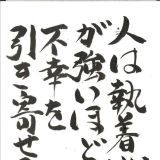 人は執着
が強いほど
不幸を
引き寄せる